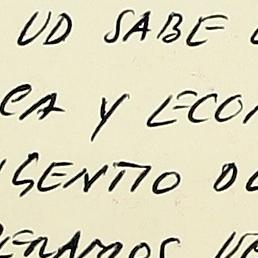 UD SABE
CA Y ECON
SENTIO DO
ERAMOS